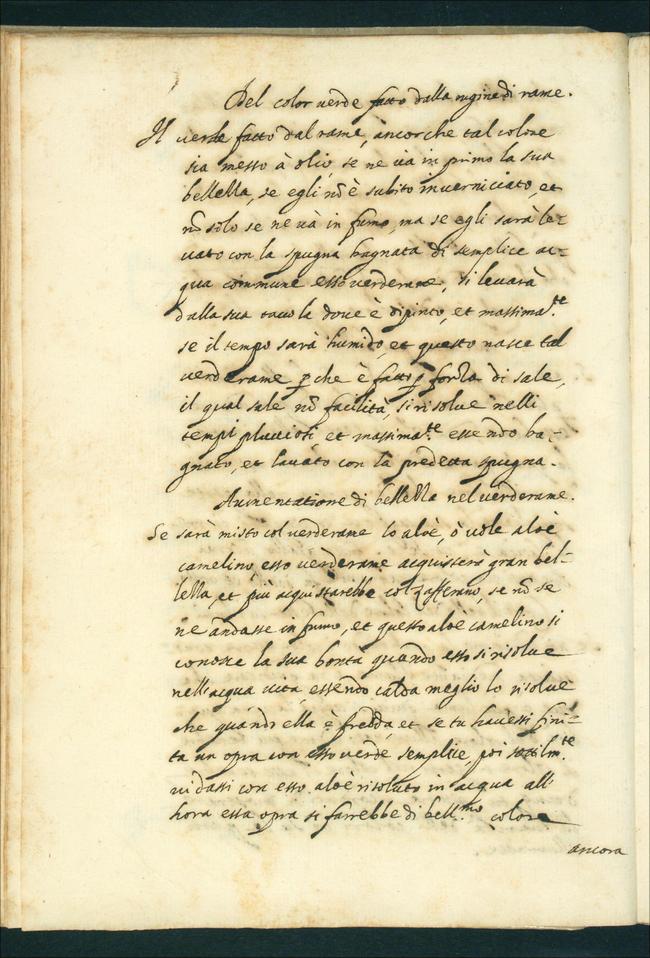 Del color verde fatto dalla rugine di rame.
Il verde fatto dal rame, ancor che tal colore
sia messo à olio, se ne và in primo la sua
bellezza, se egli nō è subito inverniciato, et
nō solo se ne và in fumo, ma se egli sarà le-
vato con la spugna bagnata di semplice ac-
qua commune esso verderame, si levarà
dalla sua tavola dove è dipinto, et massima.te
se il tempo sarà humido, et questo nasce tal
verderame p che è fatto p forza di sale,
il qual sale nō facilità, si risolve nelli
tempi pluviosi, et massima.te essendo ba-
gnato, et lavato con la predetta spugna.
Aumentatione di bellezza nel verderame.
Se sarà misto col verderame lo aloè, ò vole aloè
camelino, esso verderame acquisterà gran bel-
lezza, et più acquistarebbe col zafferano, se nō se
ne andasse in fumo, et questo aloè camelino si
conosce la sua bontà quando esso si risolve
nell'acqua vita, essendo calda meglio lo risolve
che quando ella è fredda, et se tu havessi fini-
ta un opra con esso verde semplice, poi sottilm.te
vi dassi con esso aloè risoluto in acqua all'
hora essa opra si farrebbe di bell.mo colore
ancora